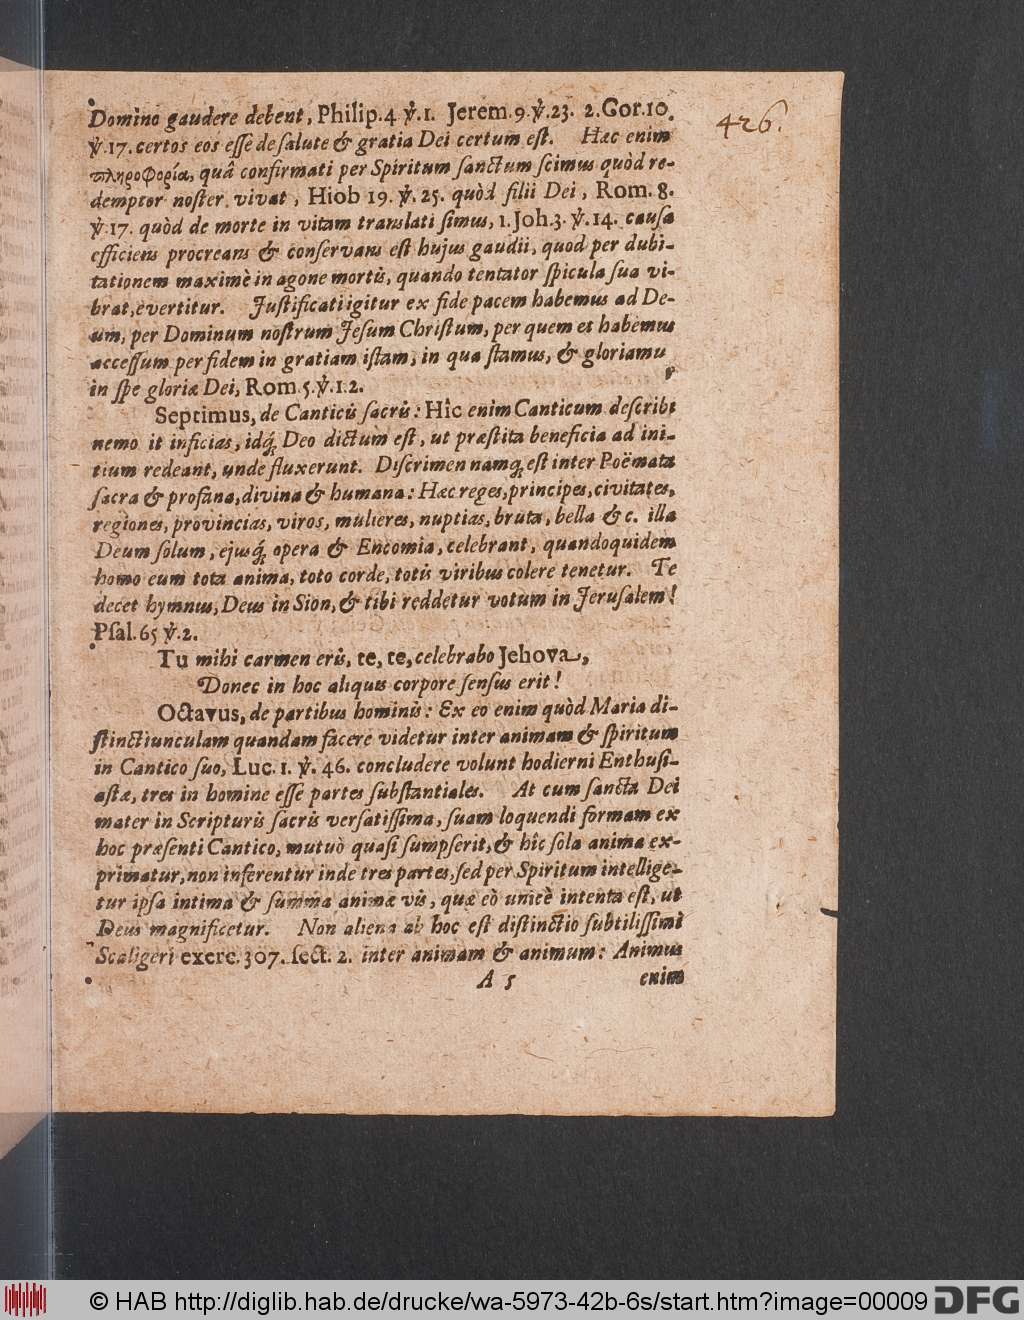 Domino gaudere debent, Philip. 4 ꝟ. 1. Jerem. 9. ꝟ. 23. 2. Cor. 10.
ꝟ. 17. certos eos esse de salute & gratia Dei certum est. Hæc enim
πληροφορία, quâ confirmati per Spiritum sanctum scimus quòd re-
demptor noster vivat, Hiob 19. ꝟ. 25. quòd filii Dei, Rom. 8.
ꝟ. 17. quòd de morte in vitam translati simus, 1. Joh. 3. ꝟ. 14. causa
efficiens procreans & conservans est hujus gaudii, quod per dubi-
tationem maximè in agone mortis, quando tentator spicula sua vi-
brat, evertitur. Justificati igitur ex fide pacem habemus ad De-
um, per Dominum nostrum Jesum Christum, per quem et habemus
accessum per fidem in gratiam istam, in qua stamus, & gloriamur
in spe gloriæ Dei, Rom. 5. ꝟ. 1. 2.
Septimus, de Canticis sacris: Hîc enim Canticum describi
nemo it inficias, idq́; Deo dictum est, ut præstita beneficia ad ini-
tium redeant, unde fluxerunt. Discrimen namq; est inter Poëmata
sacra & profana, divina & humana: Hæc reges, principes, civitates,
regiones, provincias, viros, mulieres, nuptias, bruta, bella & c. illa
Deum solum, ejusq́; opera & Encomia, celebrant, quandoquidem
homo eum tota anima, toto corde, totis viribus colere tenetur. Te
decet hymnus, Deus in Sion, & tibi reddetur votum in Jerusalem!
Psal. 65 ꝟ. 2.
Tu mihi carmen eris, te, te, celebrabo Jehova,
Donec in hoc aliquis corpore sensus erit!
Octavus, de partibus hominis: Ex eo enim quòd Maria di-
stinctiunculam quandam facere videtur inter animam & spiritum
in Cantico suo, Luc. 1. ꝟ. 46. concludere volunt hodierni Enthusi-
astæ, tres in homine esse partes substantiales. At cum sancta Dei
mater in Scripturis sacris versatissima, suam loquendi formam ex
hoc præsenti Cantico, mutuò quasi sumpserit, & hîc sola anima ex-
primatur, non inferentur inde tres partes, sed per Spiritum intellige-
tur ipsa intima & summa animæ vis, quæ eò unicè intenta est, ut
Deus magnificetur. Non aliena ab hoc est distinctio subtilissimi
Scaligeri exerc. 307. sect. 2. inter animam & animum: Animus
A 5 enim
426.
© HAB http://diglib.hab.de/drucke/wa-5973-42b-6s/start.htm?image=00009 DFG